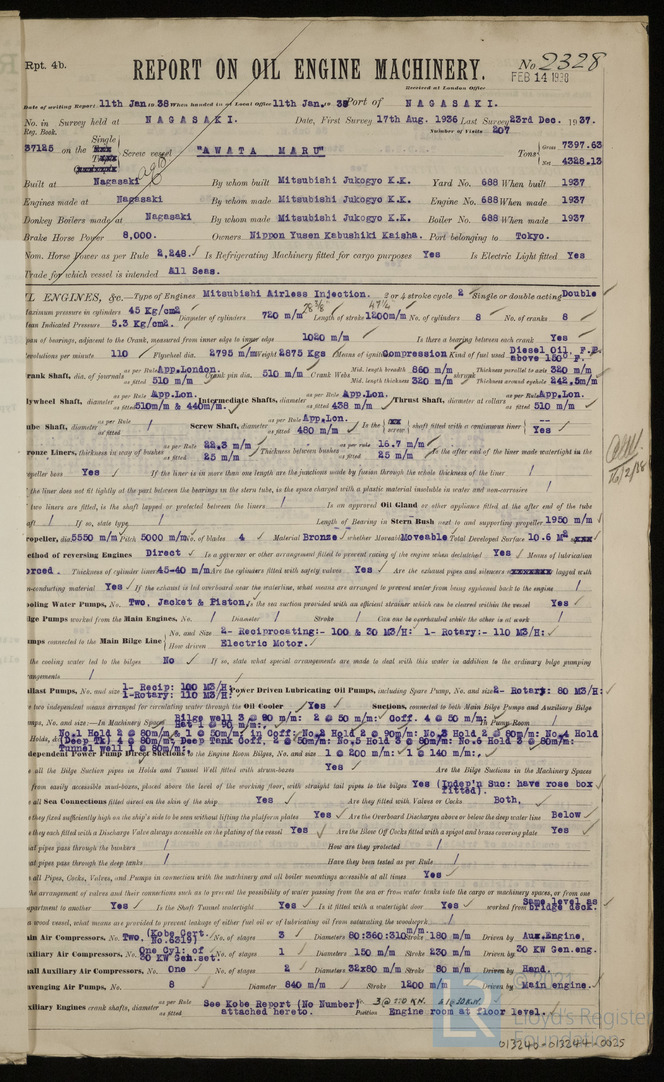 Rpt. 4b.
REPORT ON OIL ENGINE MACHINERY.
No 2328
FEB 14 1938
Received at London Office
Date of writing Report 11th Jan. 1938 When handed in at Local Office 11th Jan. 1938 Port of NAGASAKI.
No. in Survey held at NAGASAKI. Date, First Survey 17th Aug. 1936 Last Survey 23rd Dec. 1937.
Reg. Book. Number of Visits 207
37125 on the Single Screw vessel "AWATA MARU" Tons Gross 7397.63 Net 4328.13
Built at Nagasaki By whom built Mitsubishi Jukogyo K.K. Yard No. 688 When built 1937
Engines made at Nagasaki By whom made Mitsubishi Jukogyo K.K. Engine No. 688 When made 1937
Donkey Boilers made at Nagasaki By whom made Mitsubishi Jukogyo K.K. Boiler No. 688 When made 1937
Brake Horse Power 8,000. Owners Nippon Yusen Kabushiki Kaisha. Port belonging to Tokyo.
Nom. Horse Power as per Rule 2,248. Is Refrigerating Machinery fitted for cargo purposes Yes Is Electric Light fitted Yes
Trade for which vessel is intended All Seas.
IL ENGINES, &c. Type of Engines Mitsubishi Airless Injection. 2 or 4 stroke cycle 2 Single or double acting Double
aximum pressure in cylinders 45 Kg/cm2 Diameter of cylinders 720 m/m 28 3/8 Length of stroke 1200m/m 47 1/4 No. of cylinders 8 No. of cranks 8
ean Indicated Pressure 5.3 Kg/cm2.
pan of bearings, adjacent to the Crank, measured from inner edge to inner edge 1020 m/m Is there a bearing between each crank Yes
evolutions per minute 110 Flywheel dia. 2795 m/m Weight 2875 Kgs Means of ignition Compression Kind of fuel used Diesel Oil. F.P. above 180° F.
rank Shaft, dia. of journals as per Rule App.London. as fitted 510 m/m Crank pin dia. 510 m/m Crank Webs Mid. length breadth 860 m/m Mid. length thickness 320 m/m Thickness parallel to axis 320 m/m Thickness around eyehole 242.5m/m
lywheel Shaft, diameter as per Rule App.Lon. as fitted 510m/m & 440m/m. Intermediate Shafts, diameter as per Rule App.Lon. as fitted 438 m/m Thrust Shaft, diameter at collars as per Rule App.Lon. as fitted 510 m/m
ube Shaft, diameter as per Rule as fitted Screw Shaft, diameter as per Rule App.Lon. as fitted 480 m/m Is the screw shaft fitted with a continuous liner Yes
ronze Liners, thickness in way of bushes as per Rule 22.3 m/m as fitted 25 m/m Thickness between bushes as per rule 16.7 m/m as fitted 25 m/m Is the after end of the liner made watertight in the
ropeller boss Yes If the liner is in more than one length are the junctions made by fusion through the whole thickness of the liner
the liner does not fit tightly at the part between the bearings in the stern tube, is the space charged with a plastic material insoluble in water and non-corrosive
two liners are fitted, is the shaft lapped or protected between the liners Is an approved Oil Gland or other appliance fitted at the after end of the tube
aft If so, state type Length of Bearing in Stern Bush next to and supporting propeller 1950 m/m
ropeller, dia 5550 m/m Pitch 5000 m/m No. of blades 4 Material Bronze whether Moveable Moveable Total Developed Surface 10.6 M2
ethod of reversing Engines Direct Is a governor or other arrangement fitted to prevent racing of the engine when declutched Yes Means of lubrication
orced. Thickness of cylinder liners 45-40 m/m Are the cylinders fitted with safety valves Yes Are the exhaust pipes and silencers lagged with
n-conducting material Yes If the exhaust is led overboard near the waterline, what means are arranged to prevent water from being syphoned back to the engine
ooling Water Pumps, No. Two. Jacket & Piston. Is the sea suction provided with an efficient strainer which can be cleared within the vessel Yes
ilge Pumps worked from the Main Engines, No. Diameter Stroke Can one be overhauled while the other is at work
umps connected to the Main Bilge Line No. and Size 2- Reciprocating:- 100 & 30 M3/H: 1- Rotary:- 110 M3/H: How driven Electric Motor.
the cooling water led to the bilges No If so, state what special arrangements are made to deal with this water in addition to the ordinary bilge pumping
rangements
allast Pumps, No. and size 1- Recip: 100 M3/H 1-Rotary: 110 M3/H: Power Driven Lubricating Oil Pumps, including Spare Pump, No. and size 2- Rotary: 80 M3/H:
e two independent means arranged for circulating water through the Oil Cooler Yes Suctions, connected to both Main Bilge Pumps and Auxiliary Bilge
umps, No. and size:—In Machinery Spaces Bilge well 3 @ 90 m/m: 2 @ 50 m/m: Coff. 4 @ 50 m/m: Hat 1 @ 90 m/m: In Pump Room
Holds, &c. No.1 Hold 2 @ 80m/m & 1 @ 50m/m, in Coff: No.2 Hold 2 @ 90m/m: No.3 Hold 2 @ 80m/m: No.4 Hold
(Deep Tk) 4 @ 80m/m: Deep Tank Coff. 2 @ 50m/m: No.5 Hold 3 @ 80m/m: No.6 Hold 3 @ 80m/m:
Tunnel well 1 @ 80m/m:
ndependent Power Pump Direct Suctions to the Engine Room Bilges, No. and size 1 @ 200 m/m: 1 @ 140 m/m:
e all the Bilge Suction pipes in Holds and Tunnel Well fitted with strum-boxes Yes Are the Bilge Suctions in the Machinery Spaces
from easily accessible mud-boxes, placed above the level of the working floor, with straight tail pipes to the bilges Yes (Indep'n Suc: have rose box fitted).
e all Sea Connections fitted direct on the skin of the ship Yes Are they fitted with Valves or Cocks Both.
e they fixed sufficiently high on the ship's side to be seen without lifting the platform plates Yes Are the Overboard Discharges above or below the deep water line Below
e they each fitted with a Discharge Valve always accessible on the plating of the vessel Yes Are the Blow Off Cocks fitted with a spigot and brass covering plate Yes
hat pipes pass through the bunkers How are they protected
at pipes pass through the deep tanks Have they been tested as per Rule
e all Pipes, Cocks, Valves, and Pumps in connection with the machinery and all boiler mountings accessible at all times Yes
the arrangement of valves and their connections such as to prevent the possibility of water passing from the sea or from water tanks into the cargo or machinery spaces, or from one
mpartment to another Yes Is the Shaft Tunnel watertight Yes Is it fitted with a watertight door Yes worked from Same level as bridge deck.
a wood vessel, what means are provided to prevent leakage of either fuel oil or of lubricating oil from saturating the woodwork
ain Air Compressors, No. Two. (Kobe Cert. No.6319) No. of stages 3 Diameters 80:360:310 m/m. Stroke 180 m/m Driven by Aux.Engine.
uxiliary Air Compressors, No. One Cyl: of 30 KW Gen.set. No. of stages 1 Diameters 150 m/m Stroke 230 m/m Driven by 30 KW Gen.eng.
mall Auxiliary Air Compressors, No. One No. of stages 2 Diameters 32x80 m/m Stroke 80 m/m Driven by Hand.
avenging Air Pumps, No. 8 Diameter 840 m/m Stroke 1200 m/m Driven by Main engine.
uxiliary Engines crank shafts, diameter as per Rule as fitted See Kobe Report (No Number) attached hereto. Position Engine room at floor level.
© 2021
Lloyd's Register
Foundation
013246-013244-0025